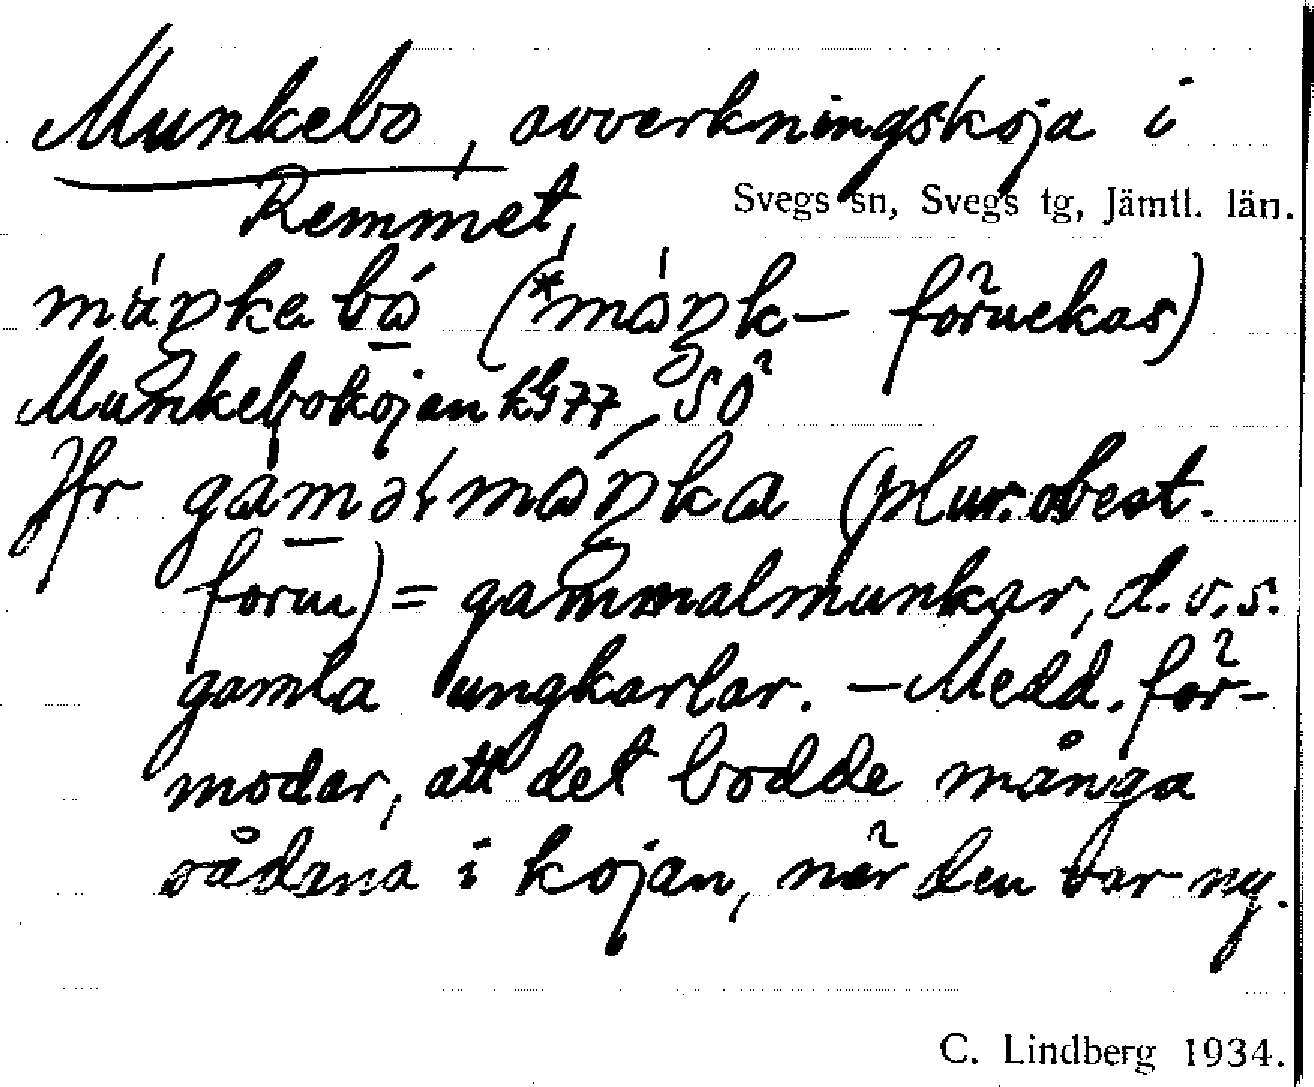 Munkebo, avverkningskoja i
Remmet, Svegs sn, Svegs tg, Jämtl. län.
(* förväckas)
Munkebokojan SÖ
Jfr (plur. obest.
form) = gammalmunkar, d.v.s.
gamla ungkarlar. – Medd. för-
modar, att det bodde många
sådana i kojan, när den var ny.
C. Lindberg 1934.